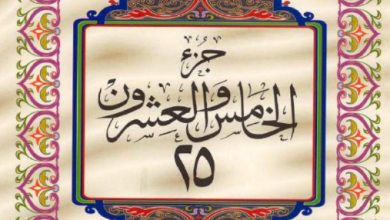 جُزءُ
الخامس والعشرون
٢٥